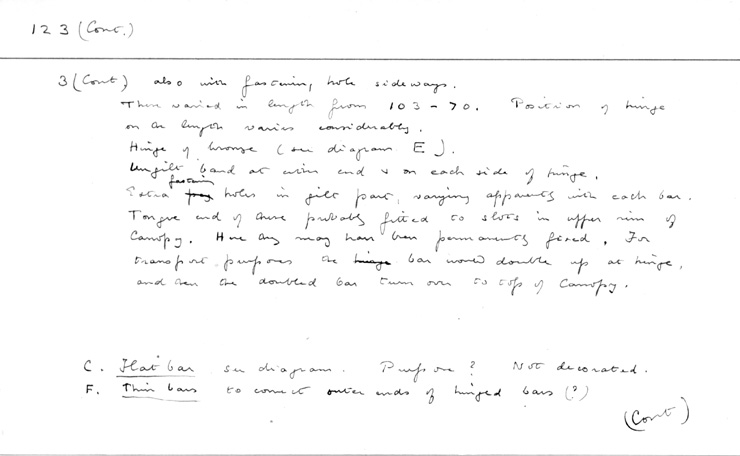 123 (Cont.)
3 (Cont) also with fastening hole sideways.
These varied in length from 103 - 70. Position of hinge
on the length varies considerably.
Hinge of bronze (see diagram E).
Ungilt band at outer end & on each side of hinge.
Extra fastening holes in gilt part, varying apparently with each bar.
Tongue end of these probably fitted to slots in upper rim of
Canopy. Here they may have been permanently fixed. For
transport purposes the bar would double up at hinge,
and then the doubled bar turn over to top of Canopy.
C. Flat bar see diagram. Purpose? Not decorated.
F. Thin bars to connect outer ends of hinged bars (?)
(Cont)